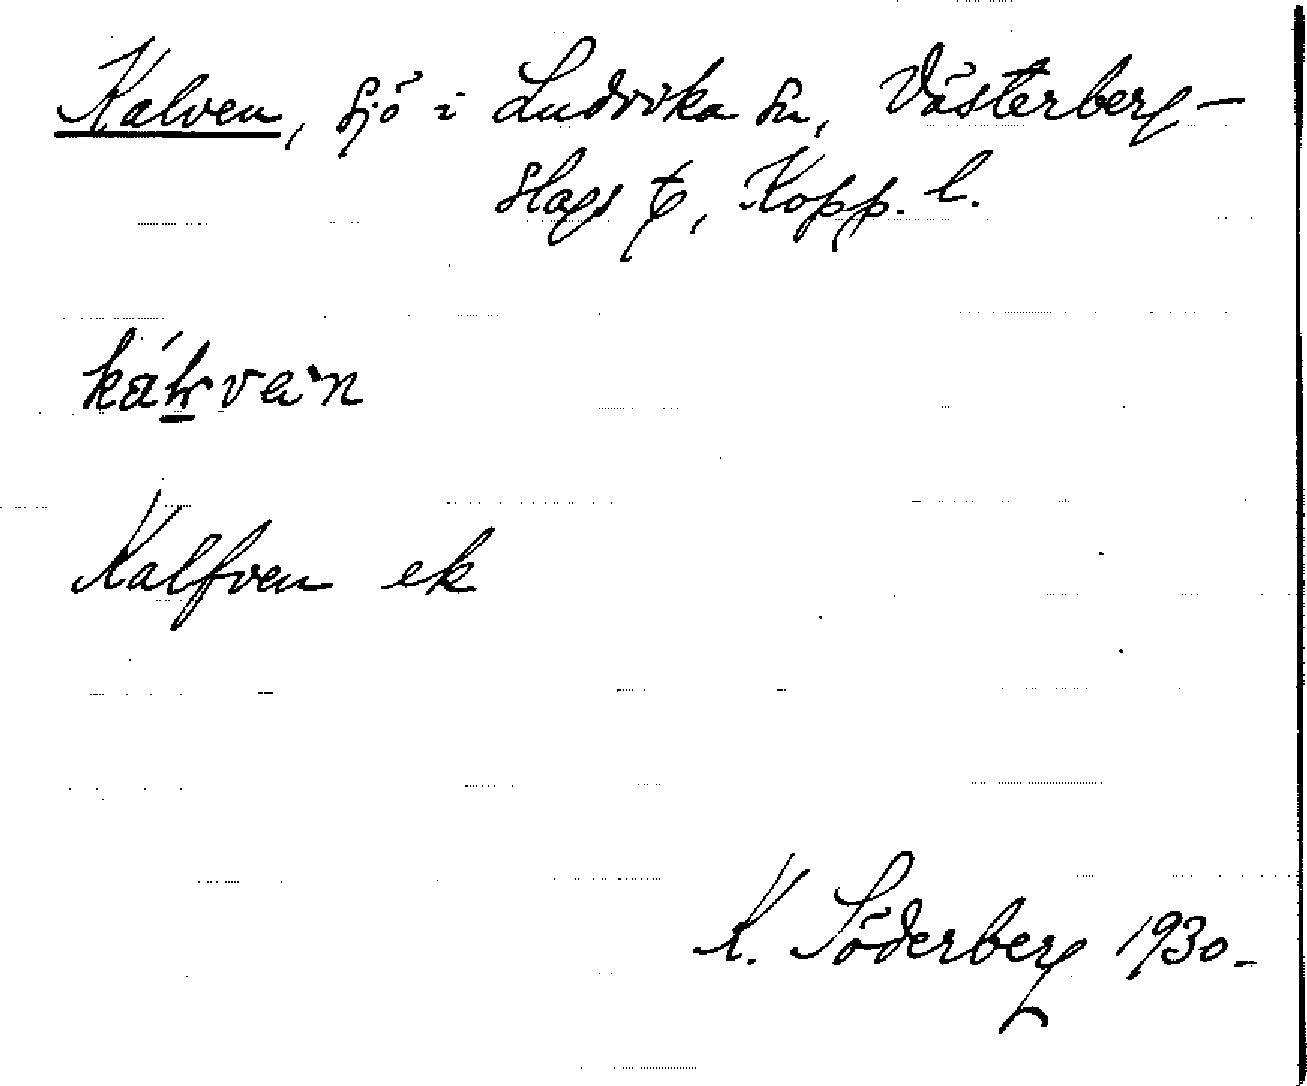 Kalven, sjö i Ludvika sn, Västerberg-
slags t, Kopp. l.
Kalfven ek
K. Söderberg 1930.